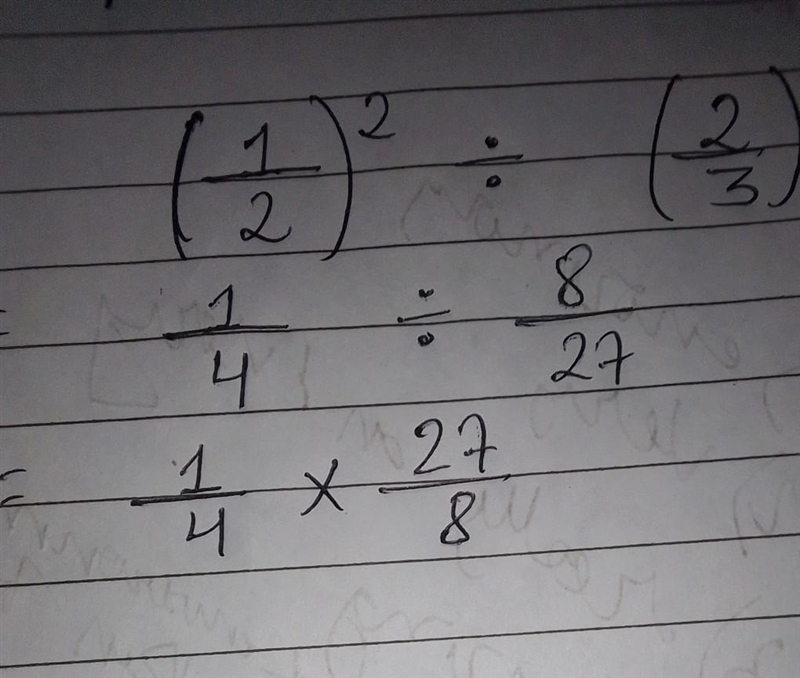 (1/2)² ÷ (2/3)
= 1/4 ÷ 8/27
= 1/4 × 27/8